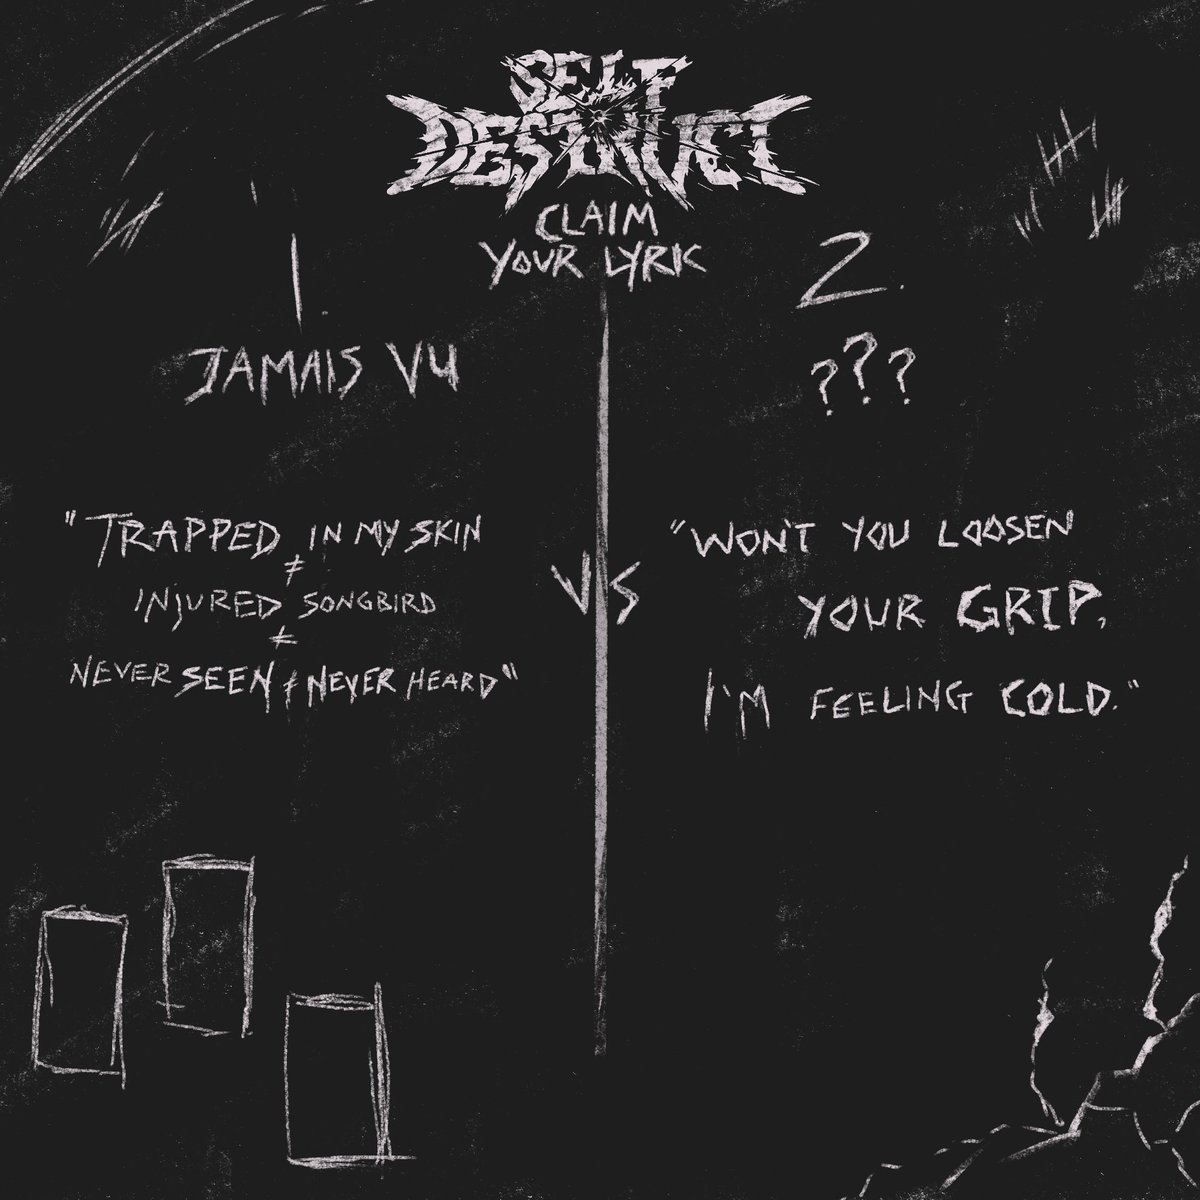 SELF
DESTRUCT
CLAIM
YOUR LYRIC
1.
JAMAIS VU
"TRAPPED IN MY SKIN
≠
INJURED SONGBIRD
≠
NEVER SEEN ≠ NEVER HEARD"
VS
2.
???
"WON'T YOU LOOSEN
YOUR GRIP,
I'M FEELING COLD."